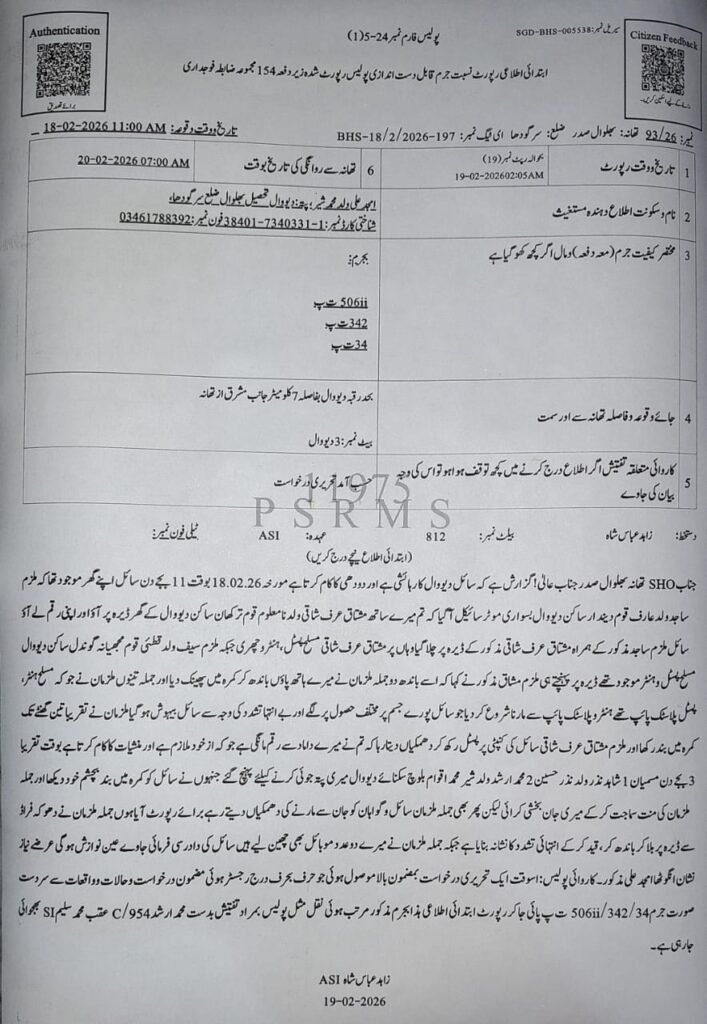 Authentication
برائے تصدیق
پولیس فارم نمبر 24-5(1)
سیریل نمبر: SGD-BHS-005538
Citizen Feedback
رائے کے لیے اسکین کریں۔
ابتدائی اطلاعی رپورٹ نسبت جرم قابل دست اندازی پولیس رپورٹ شدہ زیر دفعہ 154 مجموعہ ضابطہ فوجداری
نمبر: 93/26 تھانہ: بھلوال صدر ضلع: سرگودھا ای ٹیگ نمبر: BHS-18/2/2026-197 تاریخ و وقت وقوعہ: 18-02-2026 11:00 AM
1 تاریخ و وقت رپورٹ بحوالہ رپٹ نمبر (19) 19-02-2026 02:05AM 6 تھانہ سے روانگی کی تاریخ بوقت 20-02-2026 07:00 AM
2 نام و سکونت اطلاع دہندہ مستغیث امجد علی ولد محمد شیر؛ پتہ: دیووال تحصیل بھلوال ضلع سرگودھا،
شناختی کارڈ نمبر: 38401-7340331-1 فون نمبر: 03461788392
3 مختصر کیفیت جرم (معہ دفعہ) و مال اگر کچھ کھو گیا ہے بجرم:
506ii ت پ
342 ت پ
34 ت پ
4 جائے وقوعہ و فاصلہ تھانہ سے اور سمت بحد رقبہ دیووال بفاصلہ 7 کلومیٹر جانب مشرق از تھانہ
بیٹ نمبر: 3 دیووال
5 کاروائی متعلقہ تفتیش اگر اطلاع درج کرنے میں کچھ توقف ہوا ہو تو اس کی وجہ
بیان کی جاوے حسب آمد تحریری درخواست
11975
PSRMS
دستخط: زاہد عباس شاہ بیلٹ نمبر: 812 عہدہ: ASI ٹیلی فون نمبر:
(ابتدائی اطلاع نیچے درج کریں)
جناب SHO تھانہ بھلوال صدر جناب عالی! گزارش ہے کہ سائل دیووال کا رہائشی ہے اور دودھی کا کام کرتا ہے مورخہ 18.02.26 بوقت 11 بجے دن سائل اپنے گھر موجود تھا کہ ملزم
ساجد ولد عارف قوم دیندار ساکن دیووال بسواری موٹر سائیکل آ گیا کہ تم میرے ساتھ مشتاق عرف شاقی ولد نامعلوم قوم ترکھان ساکن دیووال کے گھر ڈیرہ پر آؤ اور اپنی رقم لے آؤ
سائل ملزم ساجد مذکور کے ہمراہ مشتاق عرف شاقی مذکور کے ڈیرہ پر چلا گیا وہاں پر مشتاق عرف شاقی مسلح پسٹل، ہنٹر و چھری جبکہ ملزم سیف ولد قوم گوندل ساکن دیووال
مسلح پسٹل و ہنٹر موجود تھے ڈیرہ پر پہنچتے ہی ملزم مشاق مذکور نے کہا کہ اسے باندھ دو جملہ ملزمان نے میرے ہاتھ پاؤں باندھ کر کمرہ میں پھینک دیا اور جملہ تینوں ملزمان نے جو کہ مسلح ہنٹر،
پسٹل پلاسٹک پائپ تھے ہنٹر و پلاسٹک پائپ سے مارنا شروع کر دیا جو سائل پورے جسم پر مختلف حصوں پر لگے اور بے انتہا تشدد کی وجہ سے سائل بیہوش ہو گیا ملزمان نے تقریبا تین گھنٹے تک
کمرہ میں بند رکھا اور ملزم مشتاق عرف شاقی سائل کی کنپٹی پر پسٹل رکھ کر دھمکیاں دیتا رہا کہ تم نے میرے داماد سے رقم مانگی ہے جو کہ از خود ملازم ہے اور منشیات کا کام کرتا ہے بوقت تقریبا
3 بجے دن مسمیان 1 شاہد نذر ولد نذر حسین 2 محمد ارشد ولد شیر محمد اقوام بلوچ سکنائے دیووال میری پتہ جوئی کرنے کیلئے پہنچ گئے جنہوں نے سائل کو کمرہ میں بند بچشم خود دیکھا اور جملہ
ملزمان کی منت سماجت کر کے میری جان بخشی کرائی لیکن پھر بھی جملہ ملزمان سائل و گواہان کو جان سے مارنے کی دھمکیاں دیتے رہے برائے رپورٹ آیا ہوں جملہ ملزمان نے دھوکہ فراڈ
سے ڈیرہ پر بلا کر باندھ کر، قید کر کے انتہائی تشدد کا نشانہ بنایا ہے جبکہ جملہ ملزمان نے میرے دو عدد موبائل بھی چھین لیے ہیں سائل کی دادرسی فرمائی جاوے عین نوازش ہو گی عرضے نیاز
نشان انگوٹھا امجد علی مذکور۔ کاروائی پولیس: اسوقت ایک تحریری درخواست بمضمون بالا موصول ہوئی جو حرف بحرف درج رجسٹر ہوئی مضمون درخواست و حالات و واقعات سے سردست
صورت جرم 506ii/342/34 ت پ پائی جا کر رپورٹ ابتدائی اطلاعی ہذا بجرم مذکور مرتب ہوئی نقل مثل پولیس بمراد تفتیش بدست محمد ارشد 954/C عقب محمد سلیم SI بھجوائی
جا رہی ہے۔
زاہد عباس شاہ ASI
19-02-2026